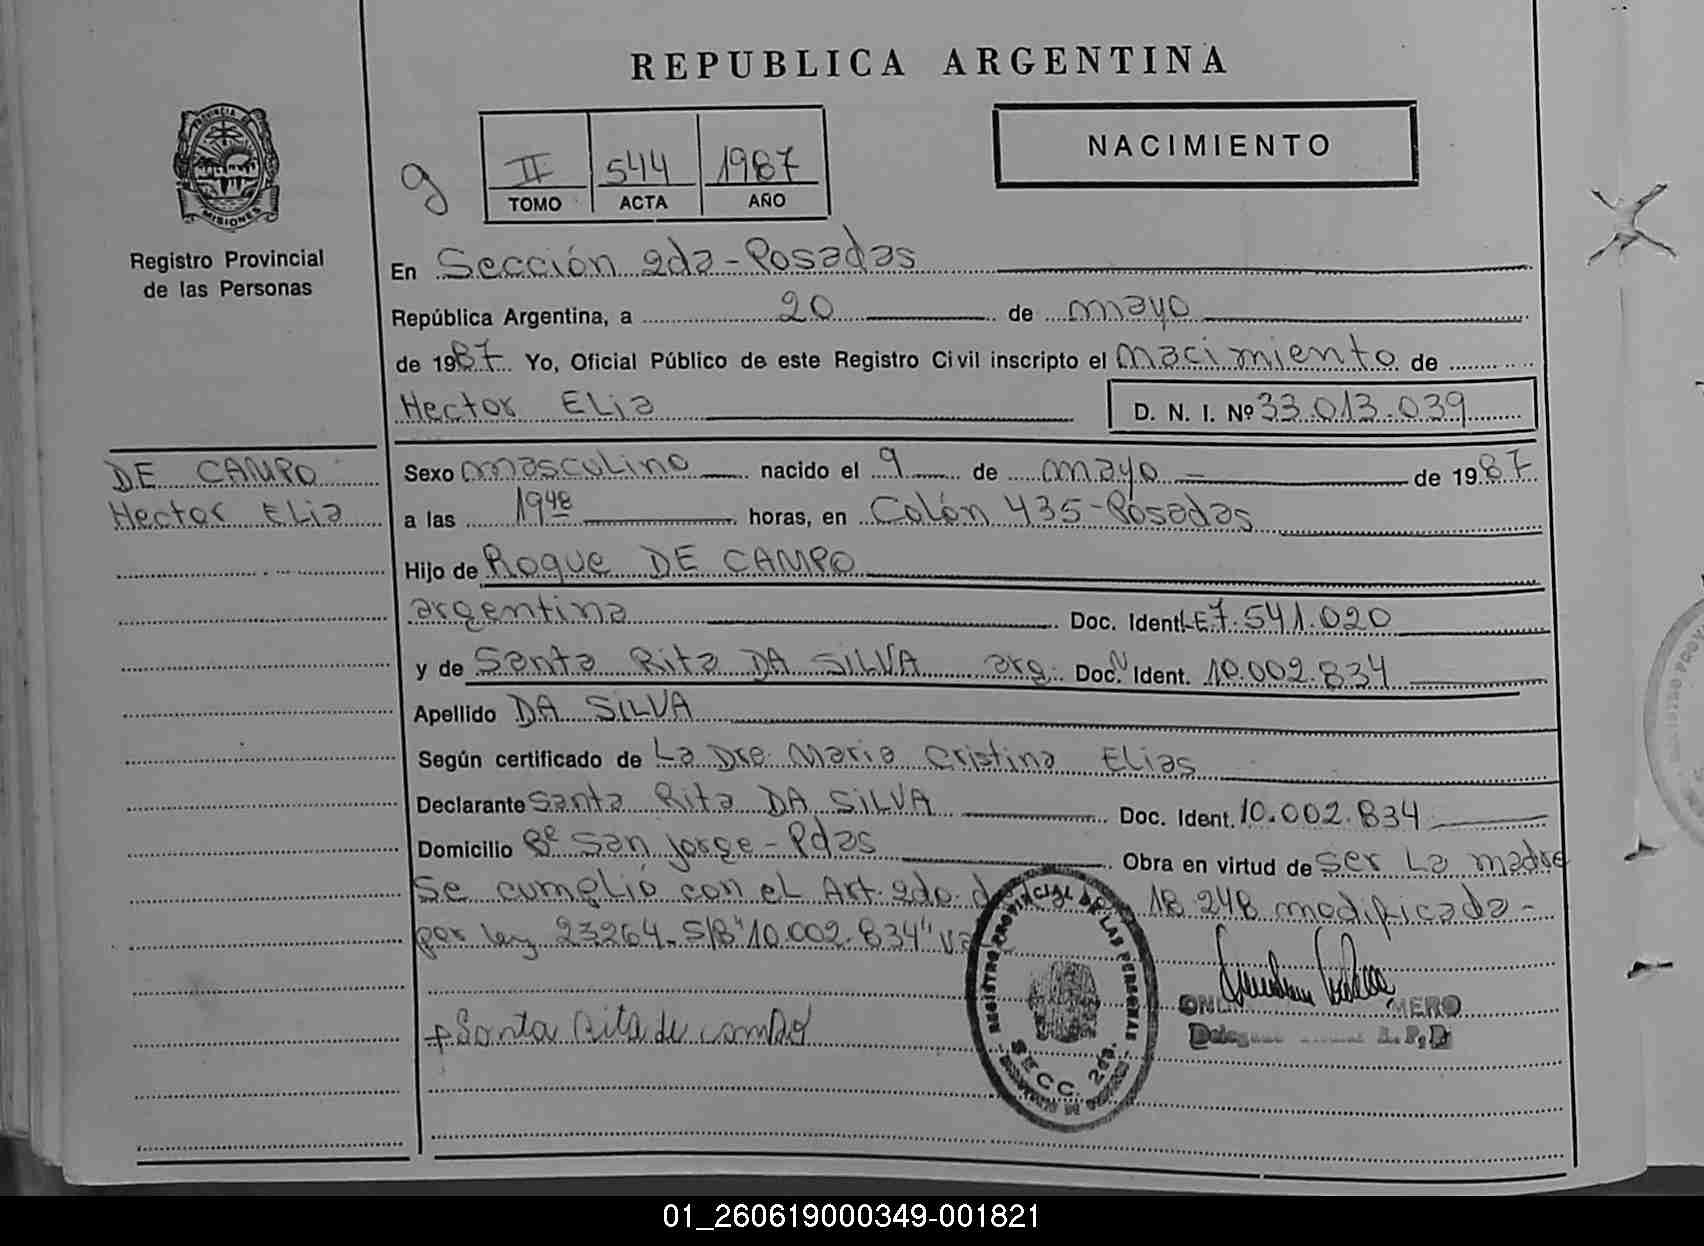 REPUBLICA ARGENTINA
PROVINCIA DE
MISIONES
Registro Provincial
de las Personas
g
II 544 1987
TOMO ACTA AÑO
NACIMIENTO
En Sección 2da - Posadas
República Argentina, a 20 de mayo
de 1987 Yo, Oficial Público de este Registro Civil inscripto el nacimiento de
Hector ELia
D. N. I. Nº 33.013.039
DE CAMPO
Hector ELia
Sexo masculino nacido el 9 de mayo de 1987
a las 19 48 horas, en Colón 435 - Posadas
Hijo de Roque DE CAMPO
argentina Doc. Ident. LE 7.541.020
y de Santa Rita DA SILVA arg. Doc. Ident. 10.002.834
Apellido DA SILVA
Según certificado de La Dra Maria Cristina Elias
Declarante Santa Rita DA SILVA Doc. Ident. 10.002.834
Domicilio Bº San jorge - Pdas Obra en virtud de ser La madre
Se cumplió con el Art. 2do. 18.248 modificada -
por ley 23264. S/B "10.002.834"
+ Santa Rita de campo
REGISTRO PROVINCIAL DE LAS PERSONAS
SECC. 2da.
01_260619000349-001821